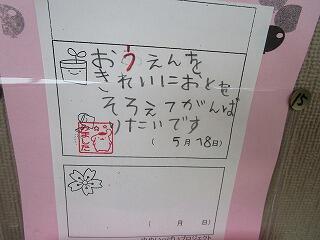 おうえんを
きれいにおとを
そろえてがんば
りたいです
みました
( 5月18日)
( 月 日)
15